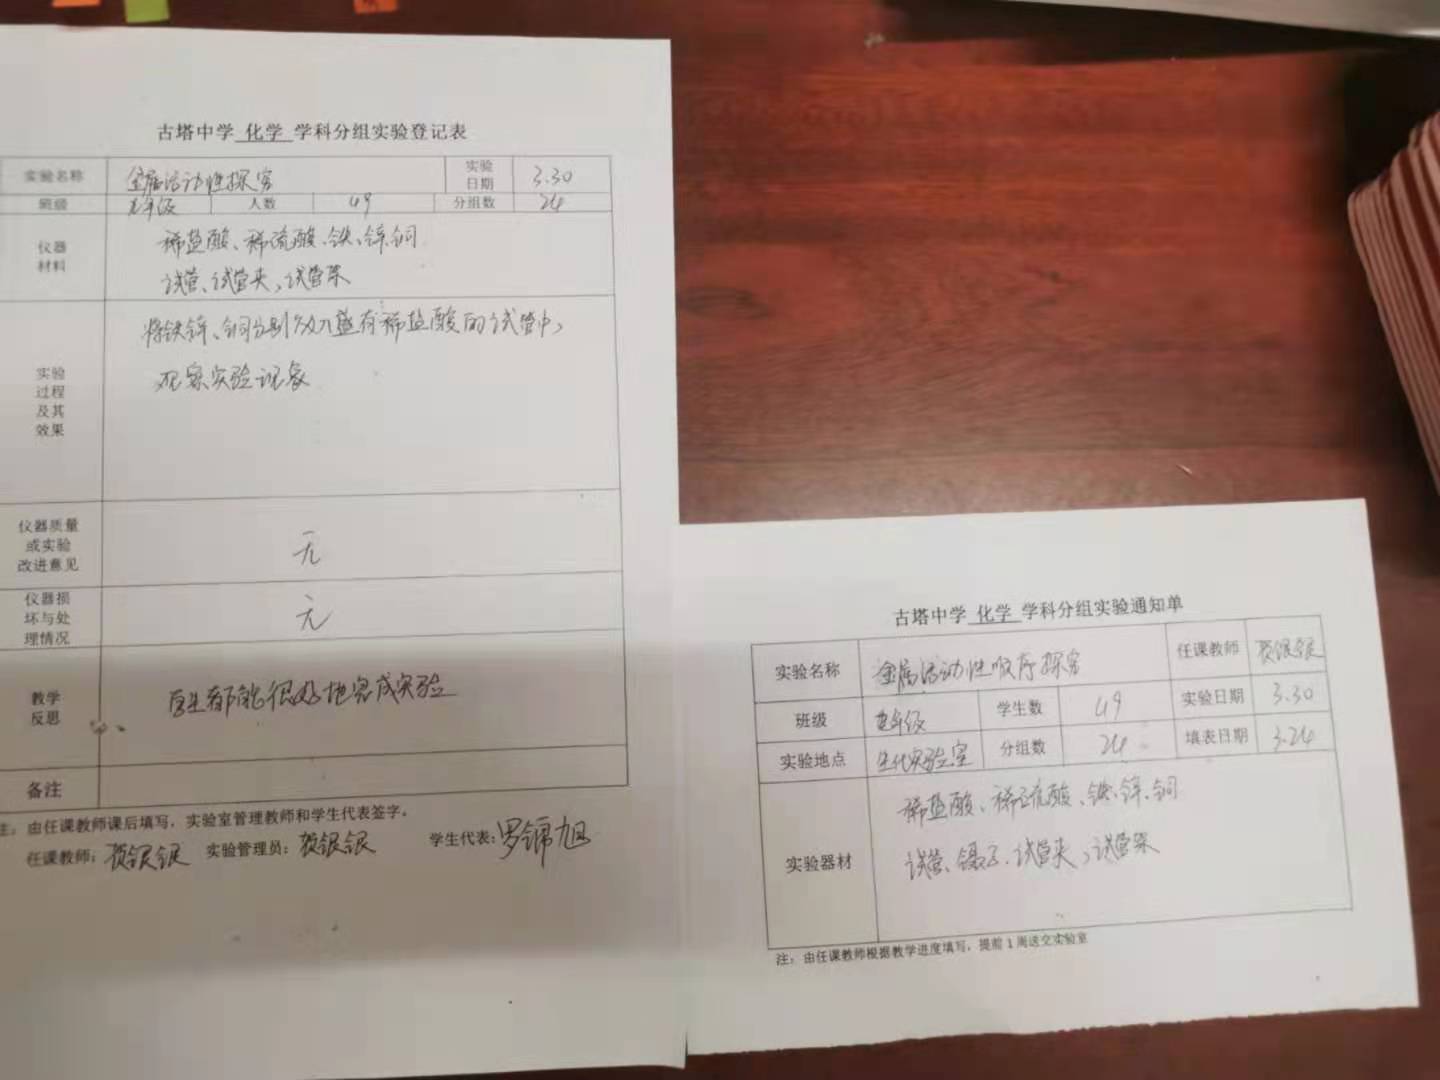 古塔中学 化学 学科分组实验登记表
实验名称 金属活动性探究 实验日期 3.30
班级 九年级 人数 49 分组数 24
仪器材料
稀盐酸、稀硫酸、铁、锌、铜
试管、试管夹、试管架
实验过程及其效果
将铁锌、铜分别放入盛有稀盐酸的试管中,
观察实验现象
仪器质量或实验改进意见 无
仪器损坏与处理情况 无
教学反思 学生都能很好地完成实验
备注
注：由任课教师课后填写，实验室管理教师和学生代表签字。
任课教师: 贺银银 实验管理员: 贺银银 学生代表: 罗锦旭
古塔中学 化学 学科分组实验通知单
实验名称 金属活动性顺序探究 任课教师 贺银银
班级 九年级 学生数 49 实验日期 3.30
实验地点 生化实验室 分组数 24 填表日期 3.24
实验器材
稀盐酸、稀硫酸、铁、锌、铜
试管、镊子、试管夹、试管架
注：由任课教师根据教学进度填写，提前1周送交实验室